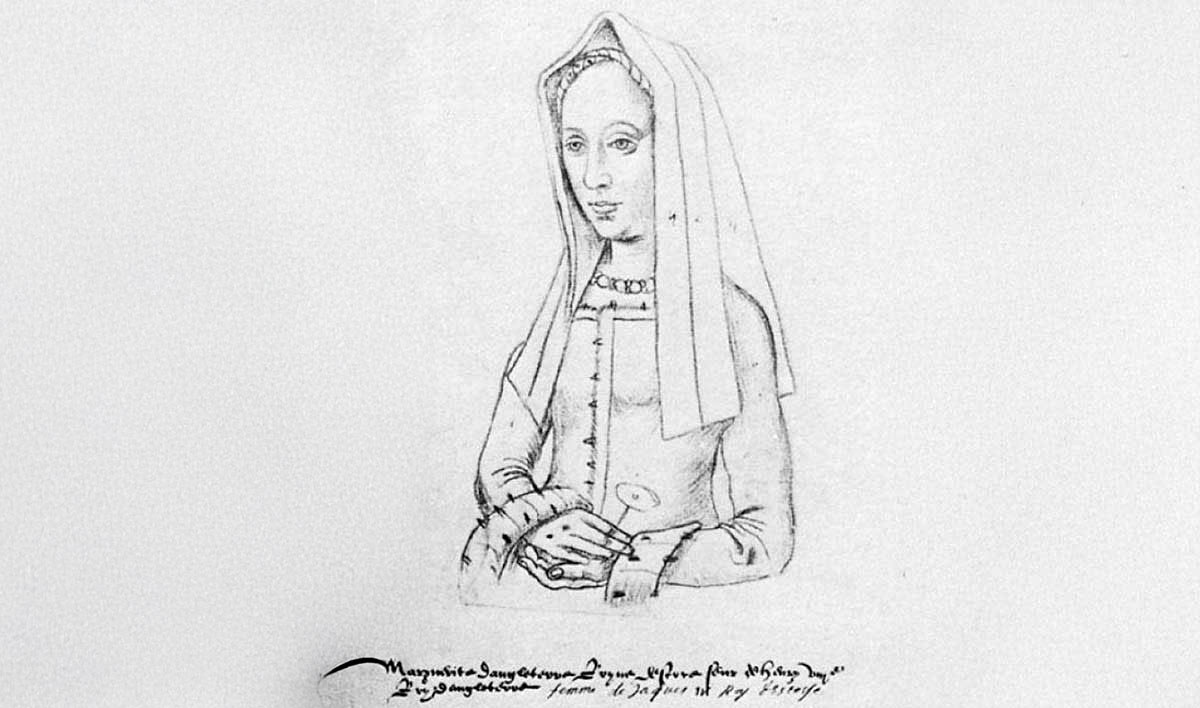 Marguerite dangleterre Royne descosse seur de henry viije
Roy dangleterre femme de Jaques IV Roy d'Escosse